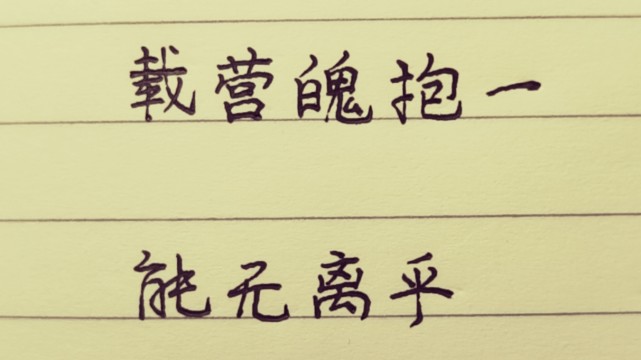 载营魄抱一
能无离乎